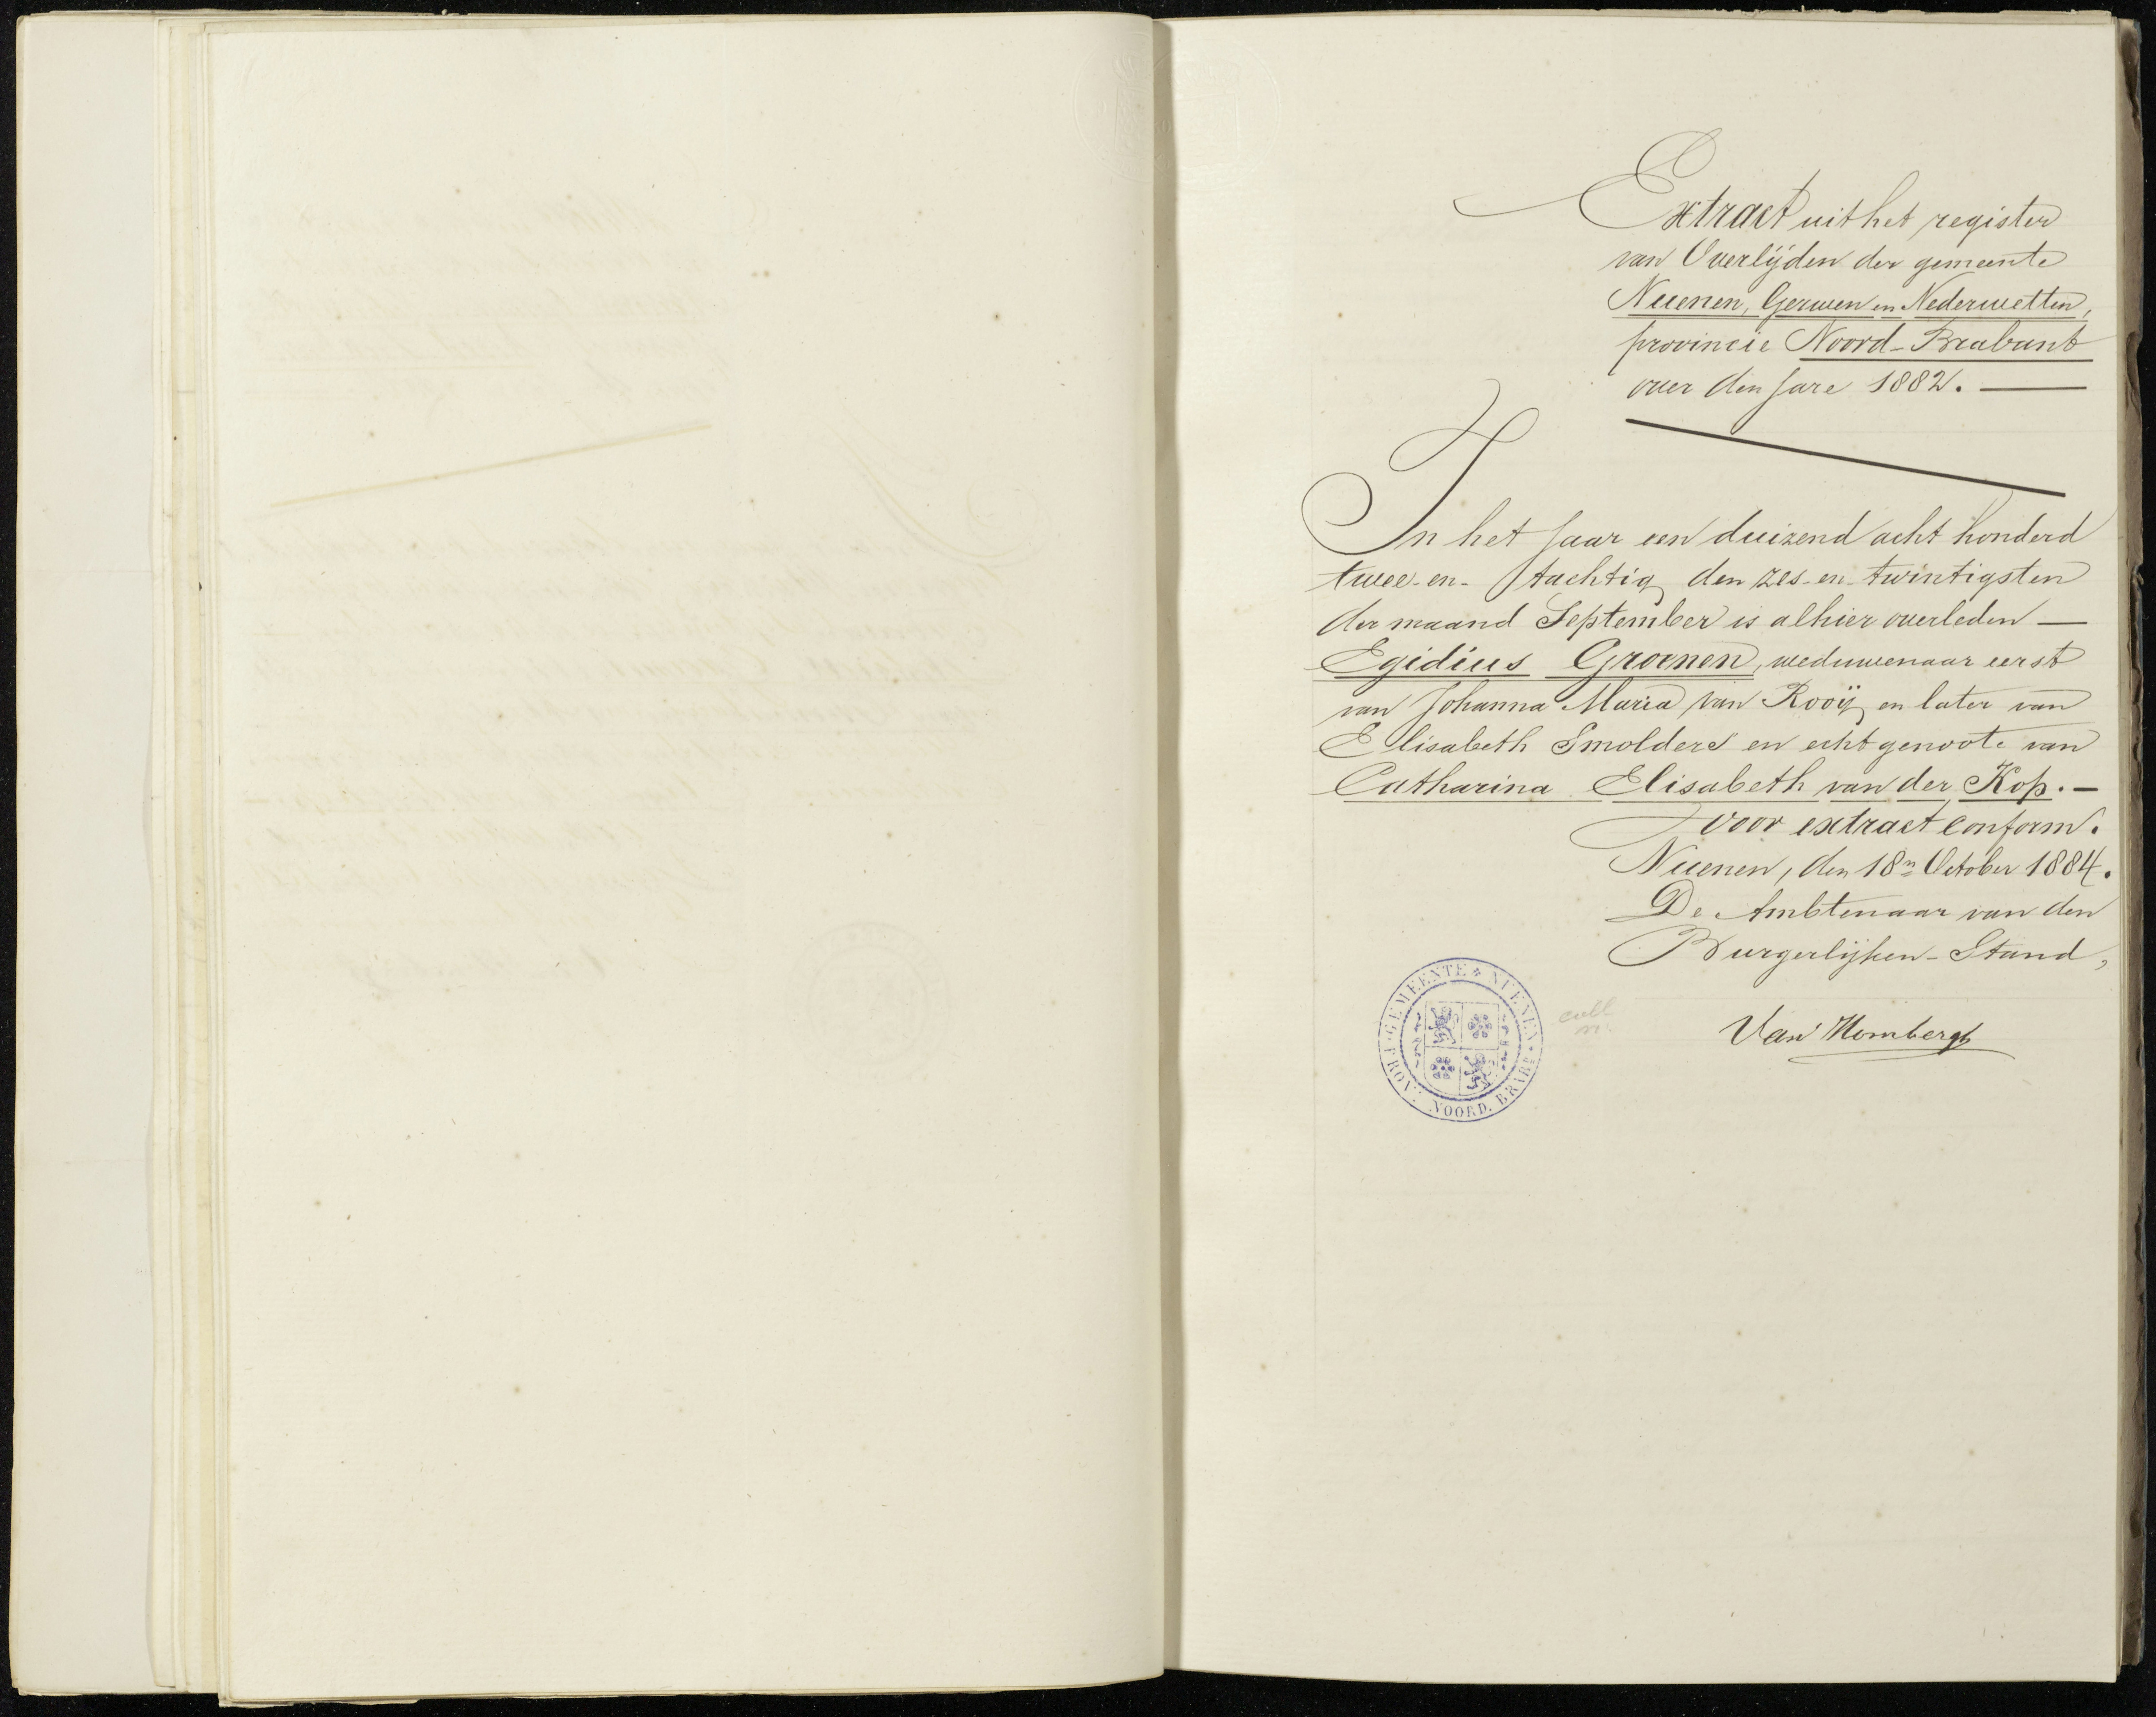 Extract uit het register
van Overlijden der gemeente
Nuenen, Gerwen en Nederwetten,
provincie Noord-Brabant
over den Jare 1882. —
In het Jaar een duizend acht honderd
twee-en-tachtig den zes-en-twintigsten
der maand September is alhier overleden —
Egidius Groenen, weduwenaar eerst
van Johanna Maria van Rooij en later van
Elisabeth Smolders en echtgenoote van
Catharina Elisabeth van der Kop. —
Voor extract conform.
Nuenen, den 18n October 1884.
De Ambtenaar van den
Burgerlijken-Stand,
GEMEENTE * NUENEN * NOORD. BRAB. PROV:
coll
n:
Van Hombergh